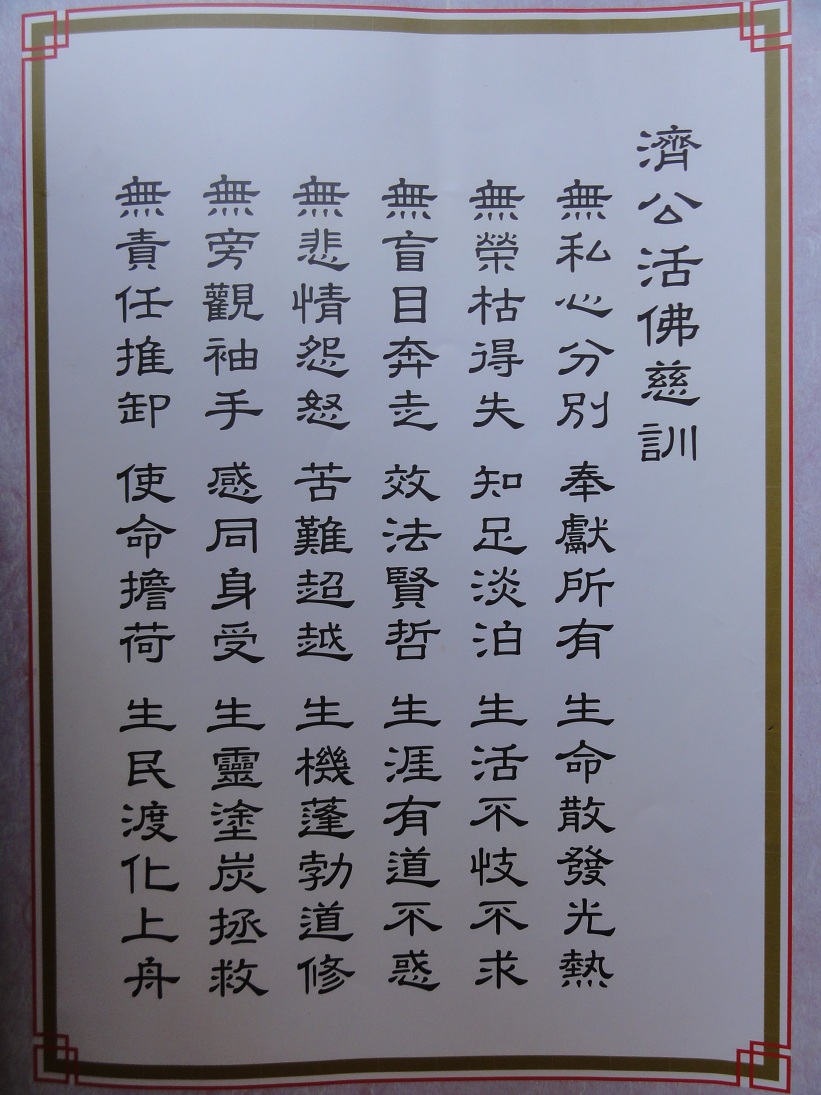 濟公活佛慈訓
無私心分別 奉獻所有 生命散發光熱
無榮枯得失 知足淡泊 生活不忮不求
無盲目奔走 效法賢哲 生涯有道不惑
無悲情怨怒 苦難超越 生機蓬勃道修
無旁觀袖手 感同身受 生靈塗炭拯救
無責任推卸 使命擔荷 生民渡化上舟